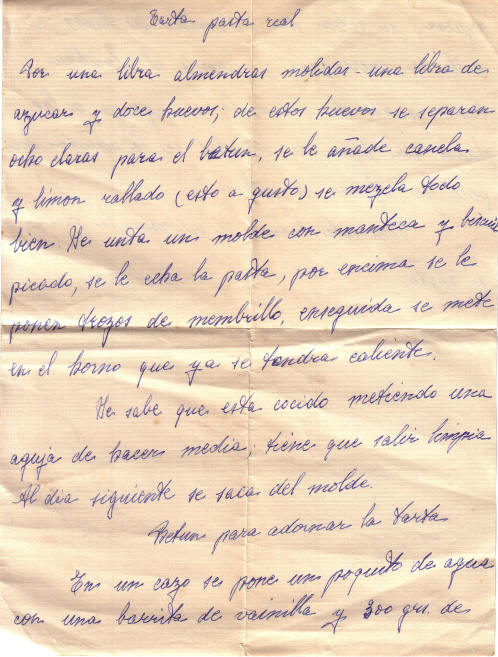 Tarta pasta real
Por una libra almendras molidas - una libra de
azucar y doce huevos; de estos huevos se separan
ocho claras para el betun, se le añade canela
y limon rallado (esto a gusto) se mezcla todo
bien. Se unta un molde con manteca y
picado, se le echa la pasta, por encima se le
ponen trozos de membrillo, enseguida se mete
en el horno que ya se tendra caliente.
Se sabe que esta cocido metiendo una
aguja de hacer media; tiene que salir limpia
Al dia siguiente se saca del molde.
Betun para adornar la tarta
En un cazo se pone un poquito de agua
con una barrita de vainilla y 300 grs. de